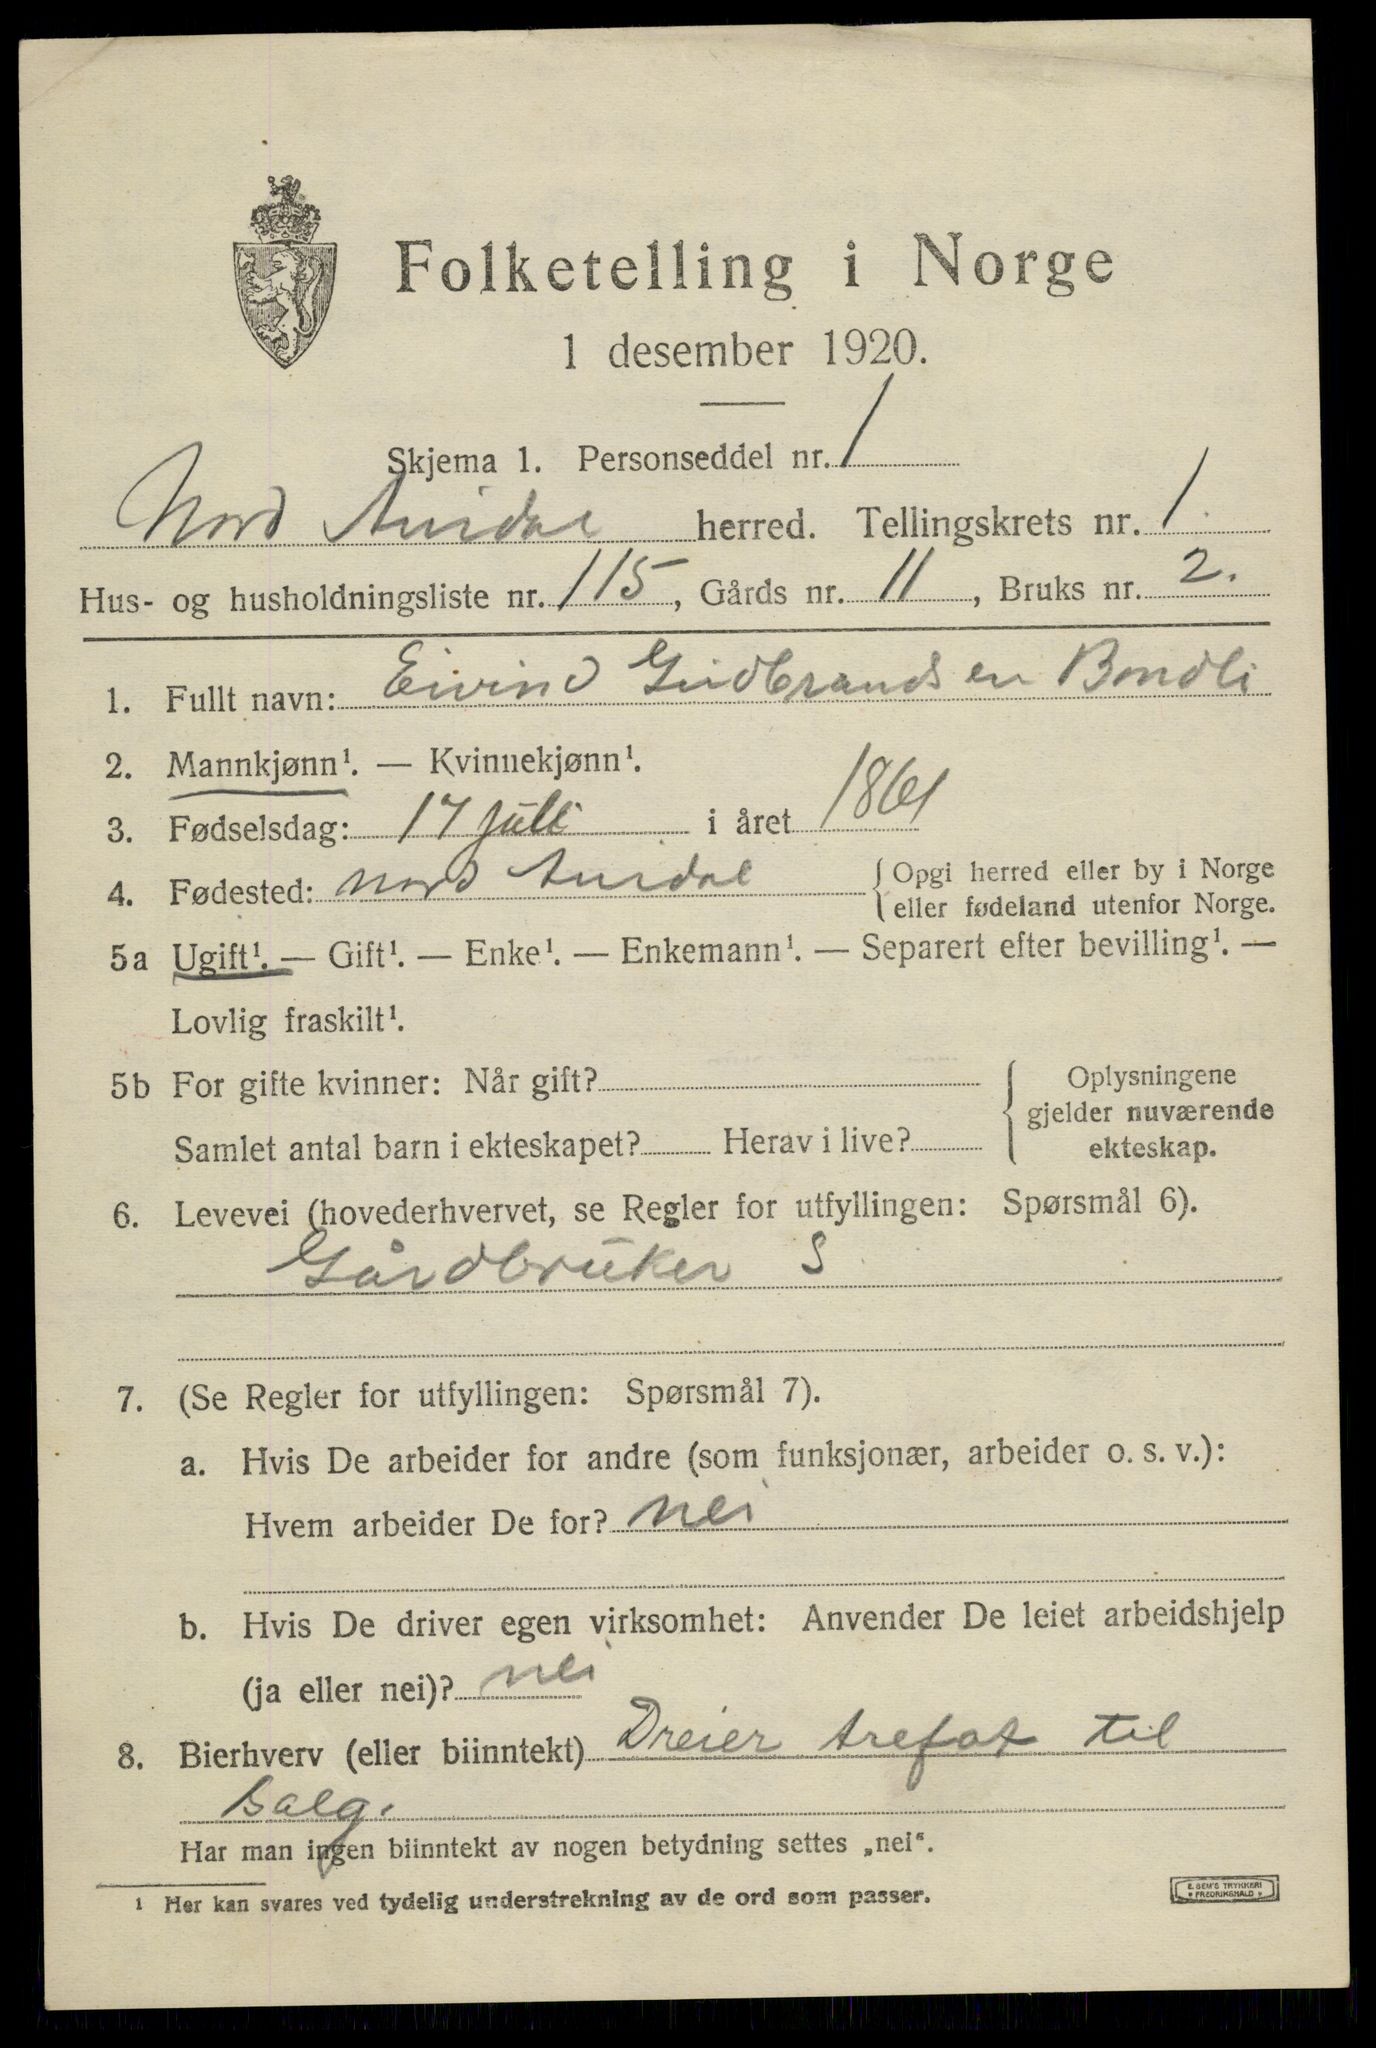 Folketelling i Norge
1 desember 1920.
Skjema 1. Personseddel nr. 1
Nord Aurdal herred. Tellingskrets nr. 1.
Hus- og husholdningsliste nr. 115, Gårds nr. 11, Bruks nr. 2.
1. Fullt navn: Eivind Gudbrandsen Bondli
2. Mannkjønn¹. — Kvinnekjønn¹.
3. Fødselsdag: 17 juli i året 1861
4. Fødested: Nord Aurdal {Opgi herred eller by i Norge
eller fødeland utenfor Norge.
5a Ugift¹. — Gift¹. — Enke¹. — Enkemann¹. — Separert efter bevilling¹. —
Lovlig fraskilt¹.
5b For gifte kvinner: Når gift? { Oplysningene
gjelder nuværende
Samlet antal barn i ekteskapet? Herav i live? ekteskap.
6. Levevei (hovederhvervet, se Regler for utfyllingen: Spørsmål 6).
Gårdbruker S
7. (Se Regler for utfyllingen: Spørsmål 7).
a. Hvis De arbeider for andre (som funksjonær, arbeider o. s. v.):
Hvem arbeider De for? nei
b. Hvis De driver egen virksomhet: Anvender De leiet arbeidshjelp
(ja eller nei)? nei
8. Bierhverv (eller biinntekt) Dreier trefat til
salg.
Har man ingen biinntekt av nogen betydning settes „nei“.
1 Her kan svares ved tydelig understrekning av de ord som passer.
E. SEM'S TRYKKERI
FREDRIKSHALD